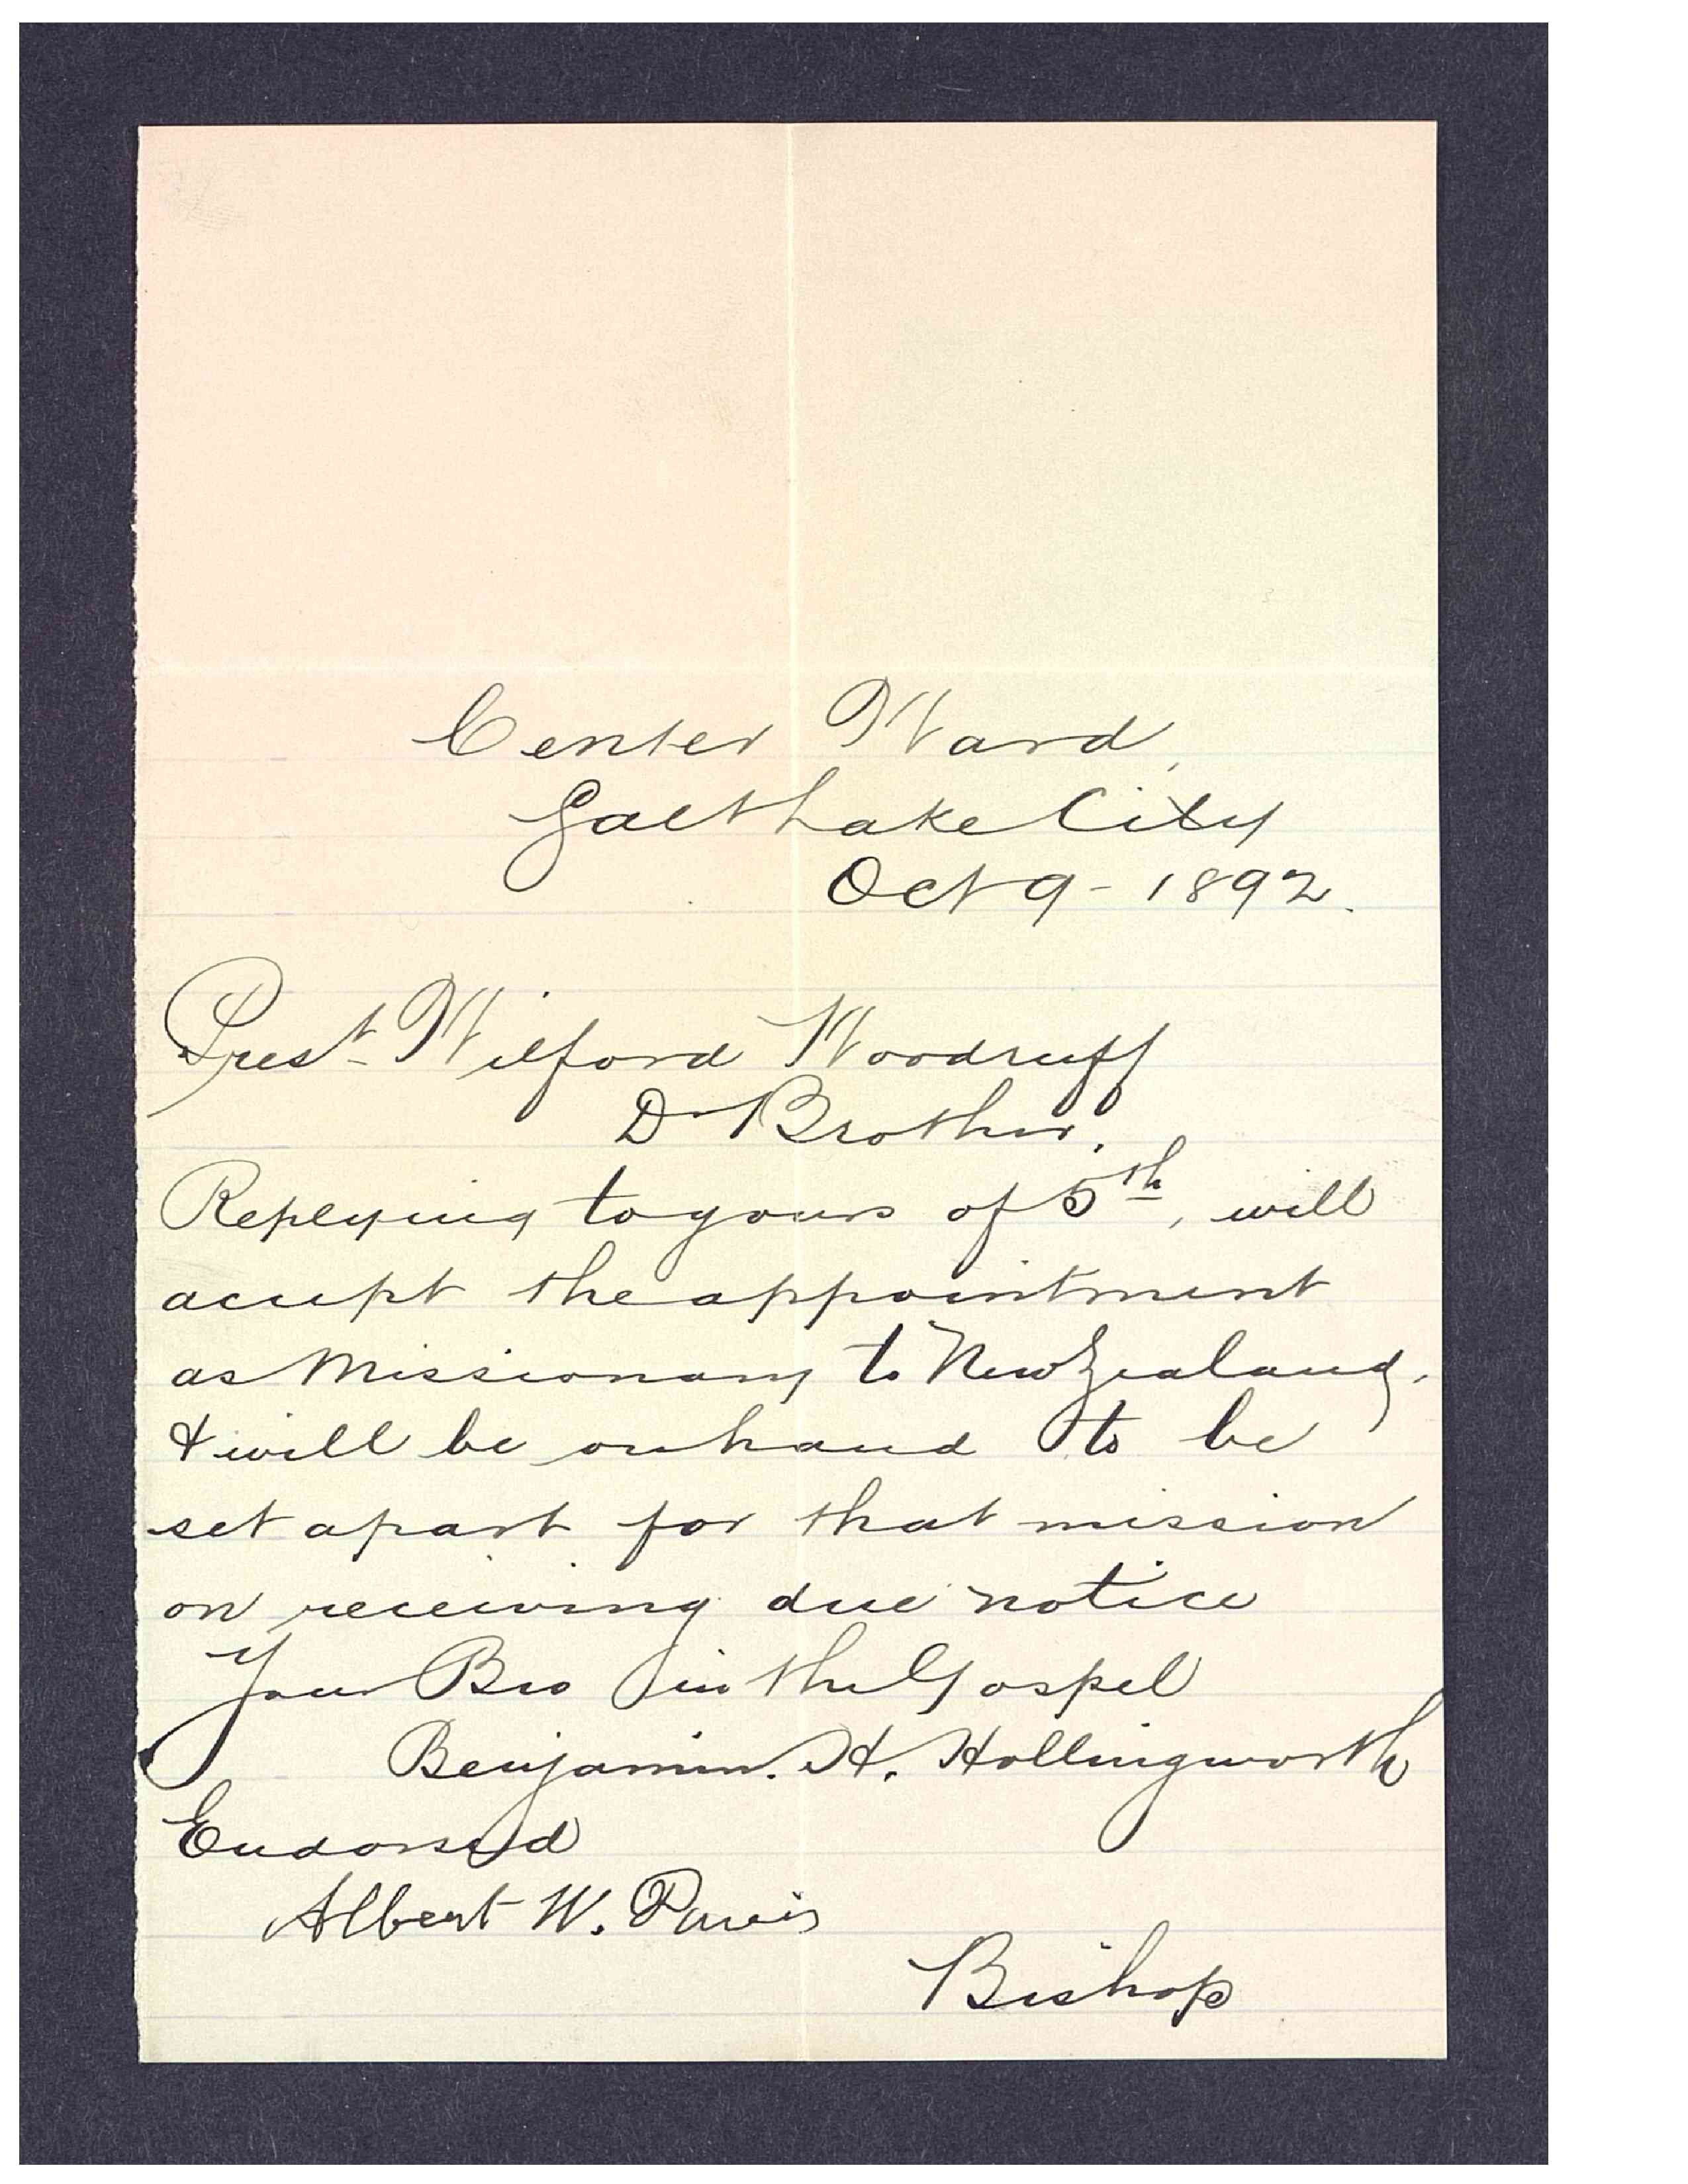 Center Ward,
Salt Lake City
Oct 9 - 1892.
Prest Wilford Woodruff
Dr Brother.
Replying to yours of 5th, will
accept the appointment
as Missionary to New Zealand,
& will be on hand to be
set apart for that mission
on receiving due notice
Your Bro in the Gospel
Benjamin. H. Hollingworth
Endorsed
Albert W. Davis
Bishop